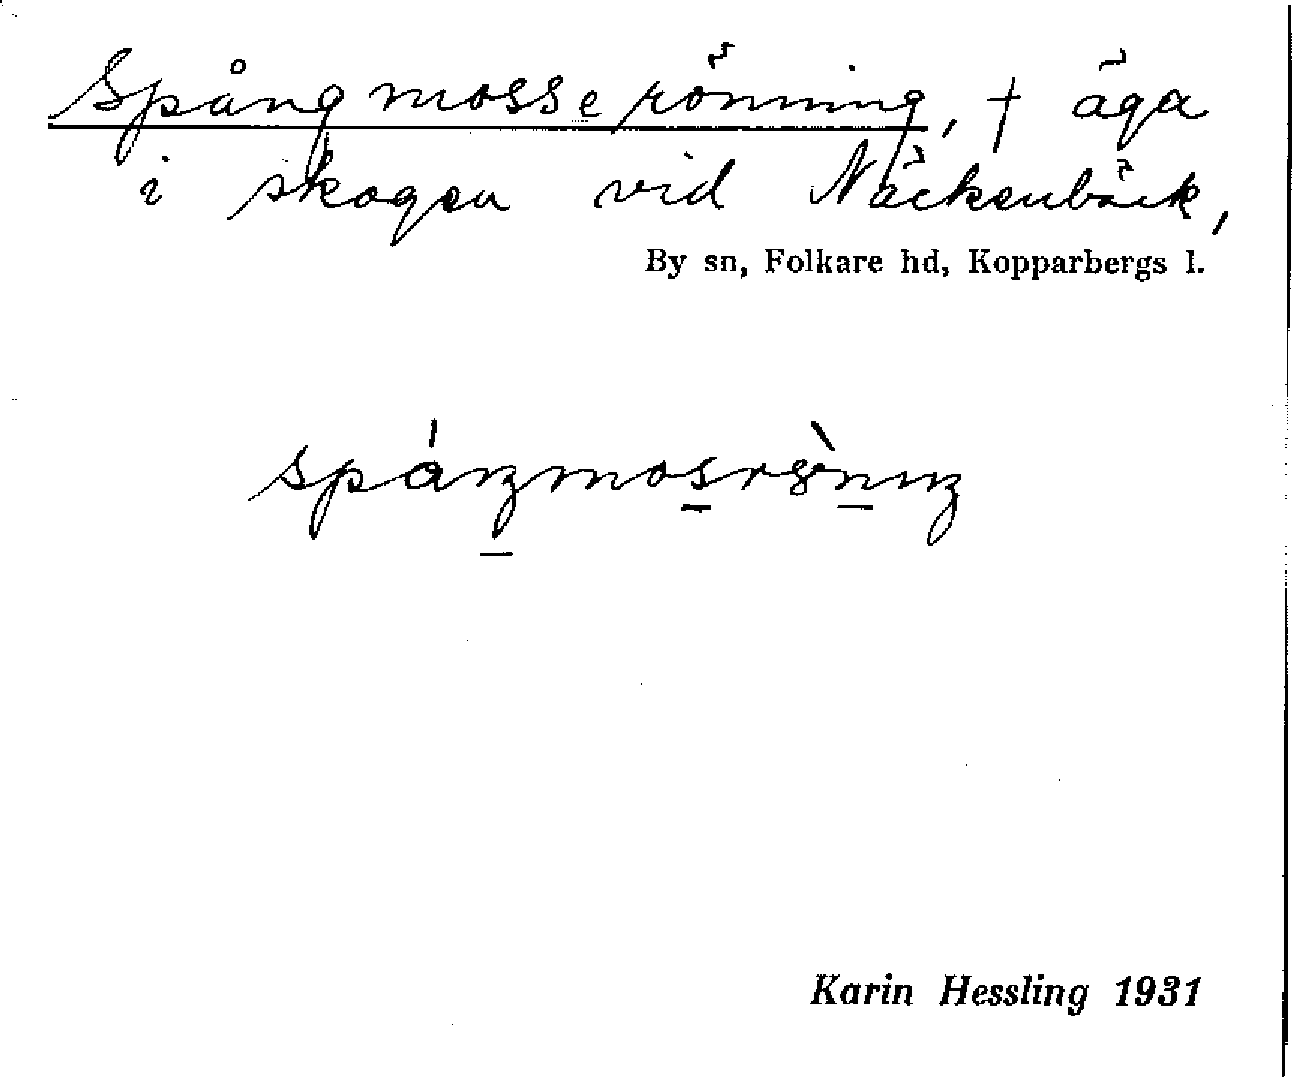 Spångmosserönning, † äga
i skogen vid Näckenbäck,
By sn, Folkare hd, Kopparbergs l.
Karin Hessling 1931